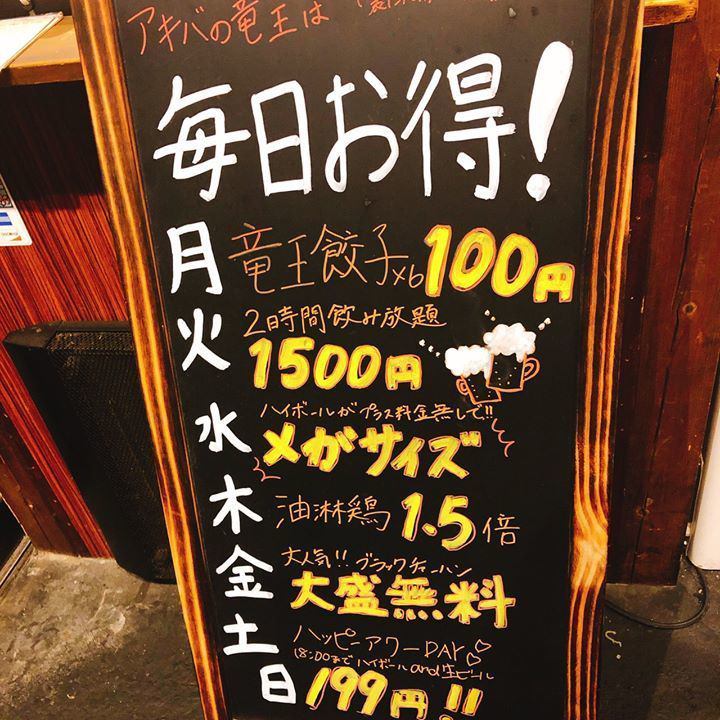 アキバの竜王は
毎日お得!
月 竜王餃子×6 100円
火 2時間飲み放題
1500円
水 ハイボールがプラス料金無しで!!
メガサイズ
木 油淋鶏 1.5倍
金 大人気!! ブラックチャーハン
大盛無料
土 ハッピーアワーDAY♡
日 18:00までハイボールand生ビール
199円!!